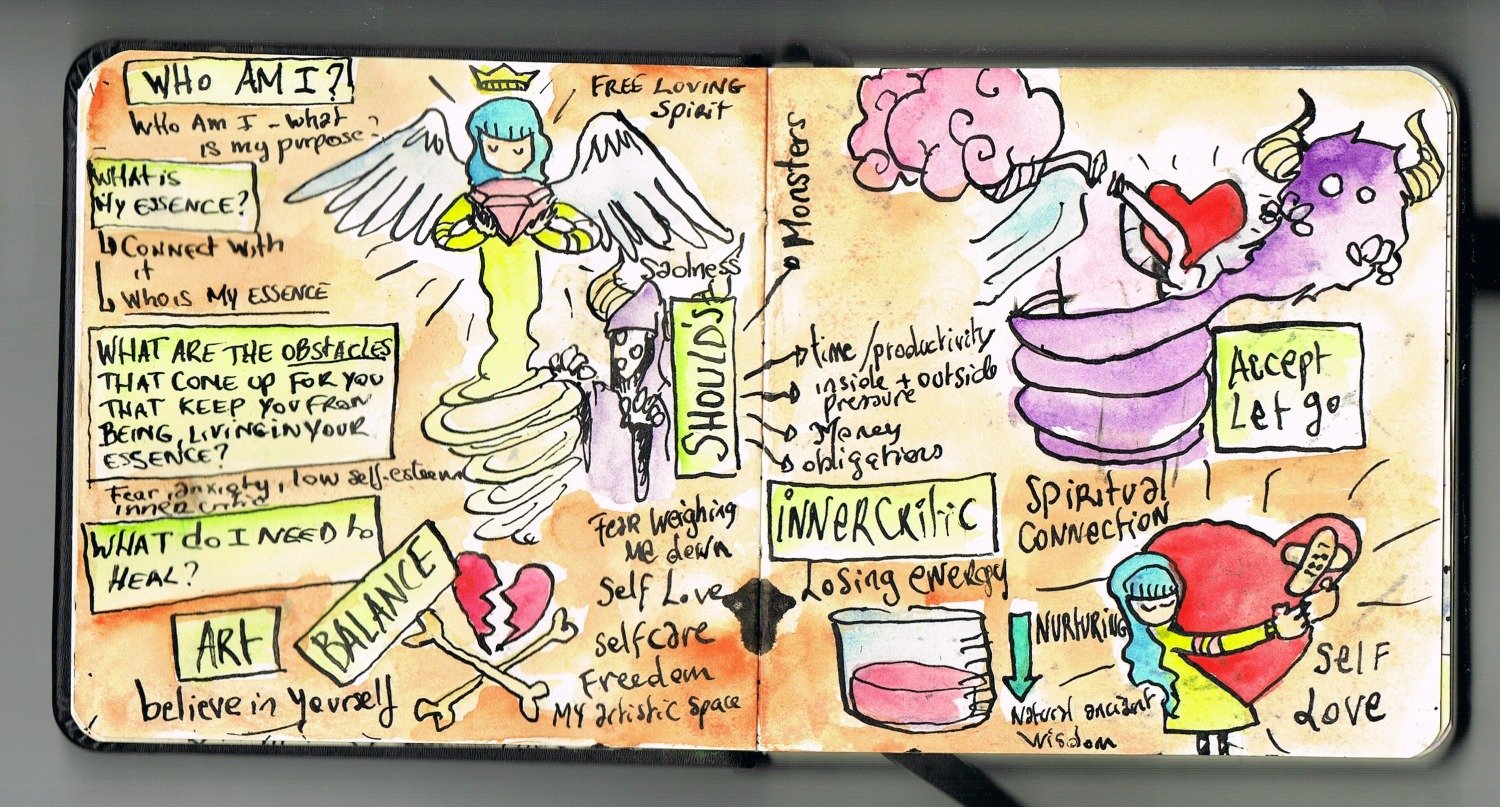 WHO AM I?
Who Am I - what
is my purpose?
WHAT is
My ESSENCE?
Connect with
it
Who is My ESSENCE
WHAT ARE THE OBSTACLES
THAT COME UP FOR YOU
THAT KEEP YOU FROM
BEING, LIVING IN YOUR
ESSENCE?
Fear, anxiety, low self-esteem
inner critic
WHAT do I NEED to
HEAL?
ART
BALANCE
believe in yourself
FREE LOVING
Spirit
Sadness
SHOULD'S
Fear weighing
me down
Self Love
selfcare
Freedom
My artistic space
Monsters
time/productivity
inside + outside
pressure
Money
obligations
INNER CRITIC
Losing energy
NURTURING
Natural ancient
Wisdom
Accept
Let go
SPIRITUAL
CONNECTION
SELF
LOVE